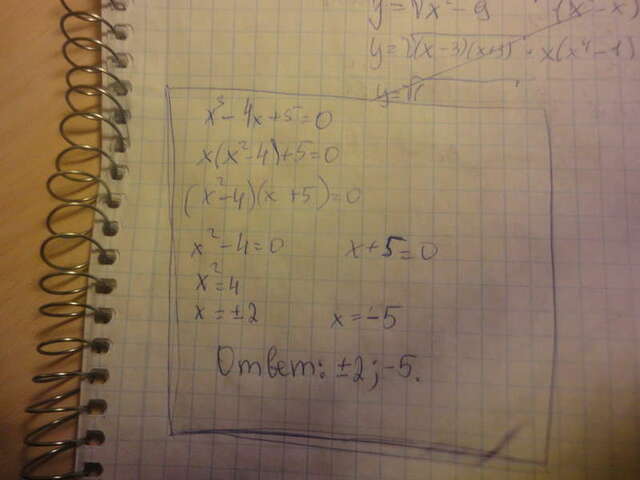 y = √x² - 9
(x⁵ - x)
y = √(x-3)(x+3) · x(x⁴-1)
y = √(
x³ - 4x + 5 = 0
x(x² - 4) + 5 = 0
(x² - 4)(x + 5) = 0
x² - 4 = 0 x + 5 = 0
x² = 4
x = ±2 x = -5
Ответ: ±2; -5.